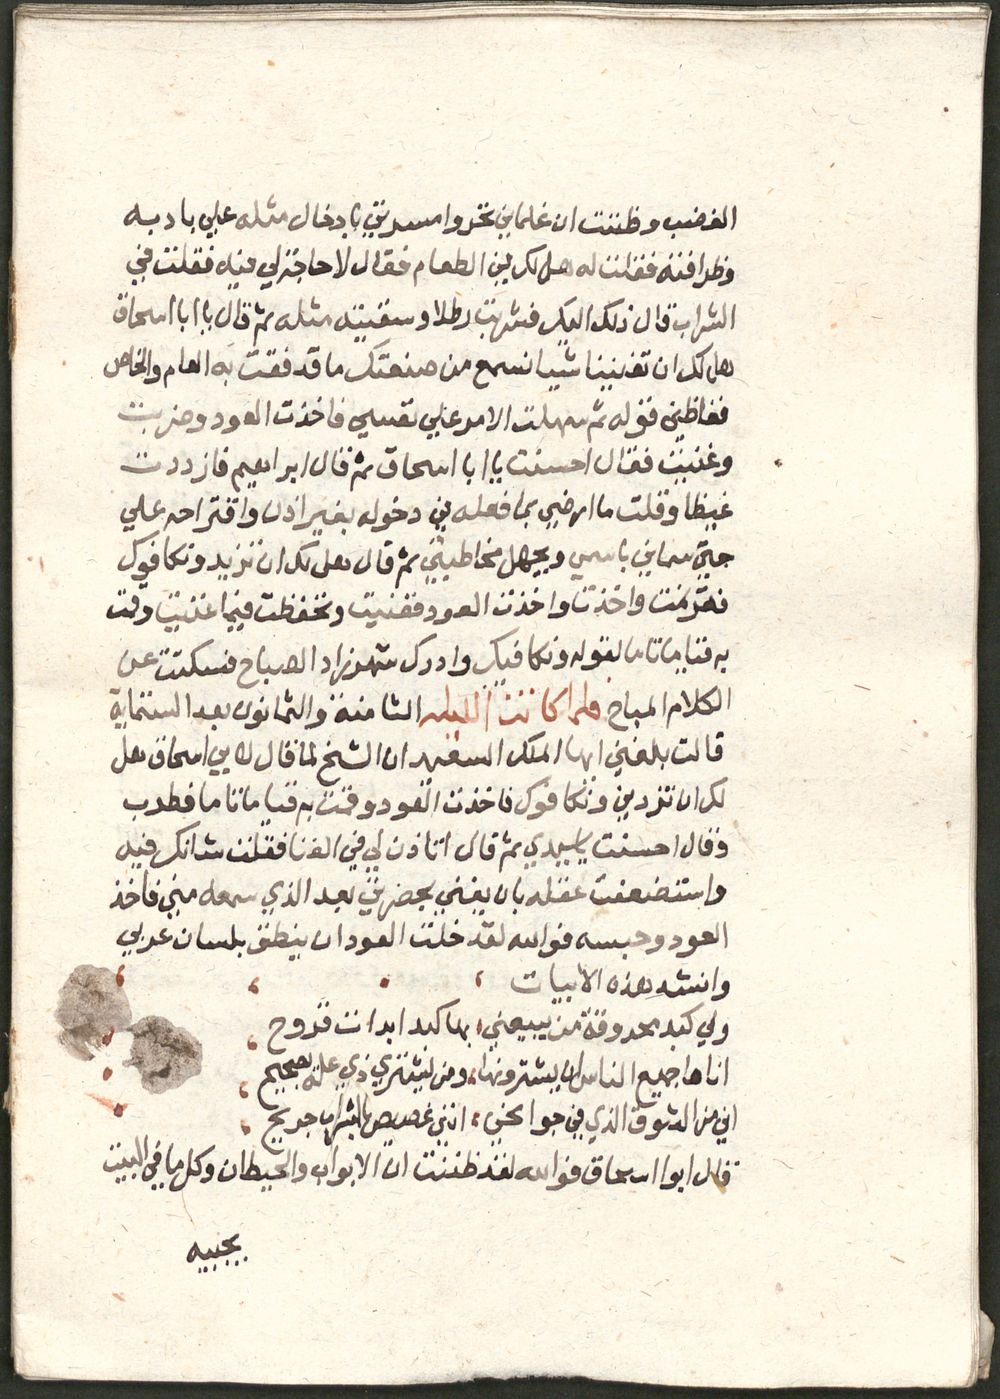 الغضب وظننت ان غلماني تحروا مسرتي بادخال مثله علي بادبه
وظرافته فقلت له هل لك في الطعام فقال لا حاجة لي فيه فقلت في
الشراب قال ذلك اليك فشربت رطلا وسقيته مثله ثم قال يا ابا اسحاق
هل لك ان تغنينا شيا نسمع من صنعتك ما قد فقت به العام والخاص
فغاظني قوله ثم سهلت الامر على نفسي فاخذت العود وضربت
وغنيت فقال احسنت يا ابا اسحاق ثم قال ابراهيم فازددت
غيظا وقلت ما رضي بما فعله في دخوله بغير اذن واقتراحه علي
حتى سماني باسمي ويجهل مخاطبتي ثم قال هل لك ان تزيد ونكافوك
فتذممت واخذت العود فغنيت وتحفظت فيما غنيت وقمت
به قياما تاما لقوله ونكافيك وادرك شهرزاد الصباح فسكتت عن
الكلام المباح فلما كانت الليلة الثامنة والثمانون بعد الستماية
قالت بلغني ايها الملك السعيد ان الشيخ لما قال لابي اسحاق هل
لك ان تزدني ونكافوك فاخذت العود وقمت به قياما تاما فطرب
وقال احسنت يا سيدي ثم قال اتاذن لي في الغنا فقلت شانك فيه
واستضعفت عقله بان يغني بحضرتي بعد الذي سمعه مني فاخذ
العود وحبسه فوالله لقد خلت العود ان ينطق بلسان عربي
وانشد هذه الابيات
ولي كبد محروقة من يبيعني، بها كبد ابدا ت قروح
اناها جميع الناس ان يشترونها، ومن يشتري ذي علة بصحيح
اني من الشوق الذي في جوانحي، انين غصيص بالشراب جريح
قال ابوا اسحاق فوالله لقد ظننت ان الابواب والحيطان وكل ما في البيت
يجيبه